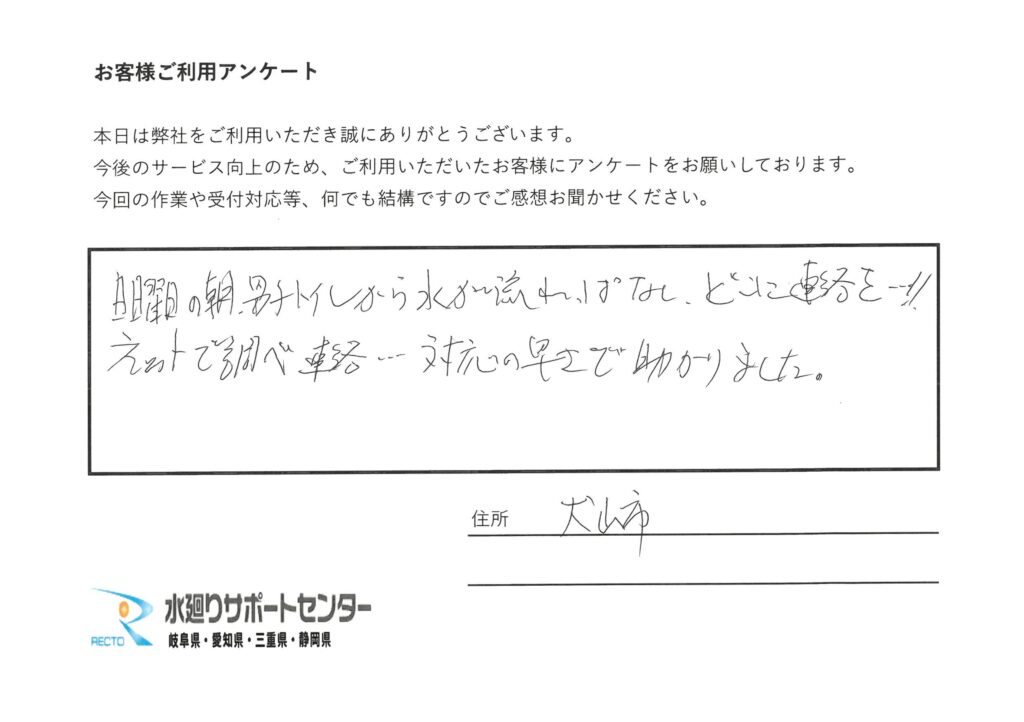 お客様ご利用アンケート
本日は弊社をご利用いただき誠にありがとうございます。
今後のサービス向上のため、ご利用いただいたお客様にアンケートをお願いしております。
今回の作業や受付対応等、何でも結構ですのでご感想お聞かせください。
日曜日の朝、男子トイレから水が流れっぱなし、どこに連絡を…!!
ネットで調べ連絡… 対応の早さで助かりました。
住所 犬山市
RECTO 水廻りサポートセンター
岐阜県・愛知県・三重県・静岡県